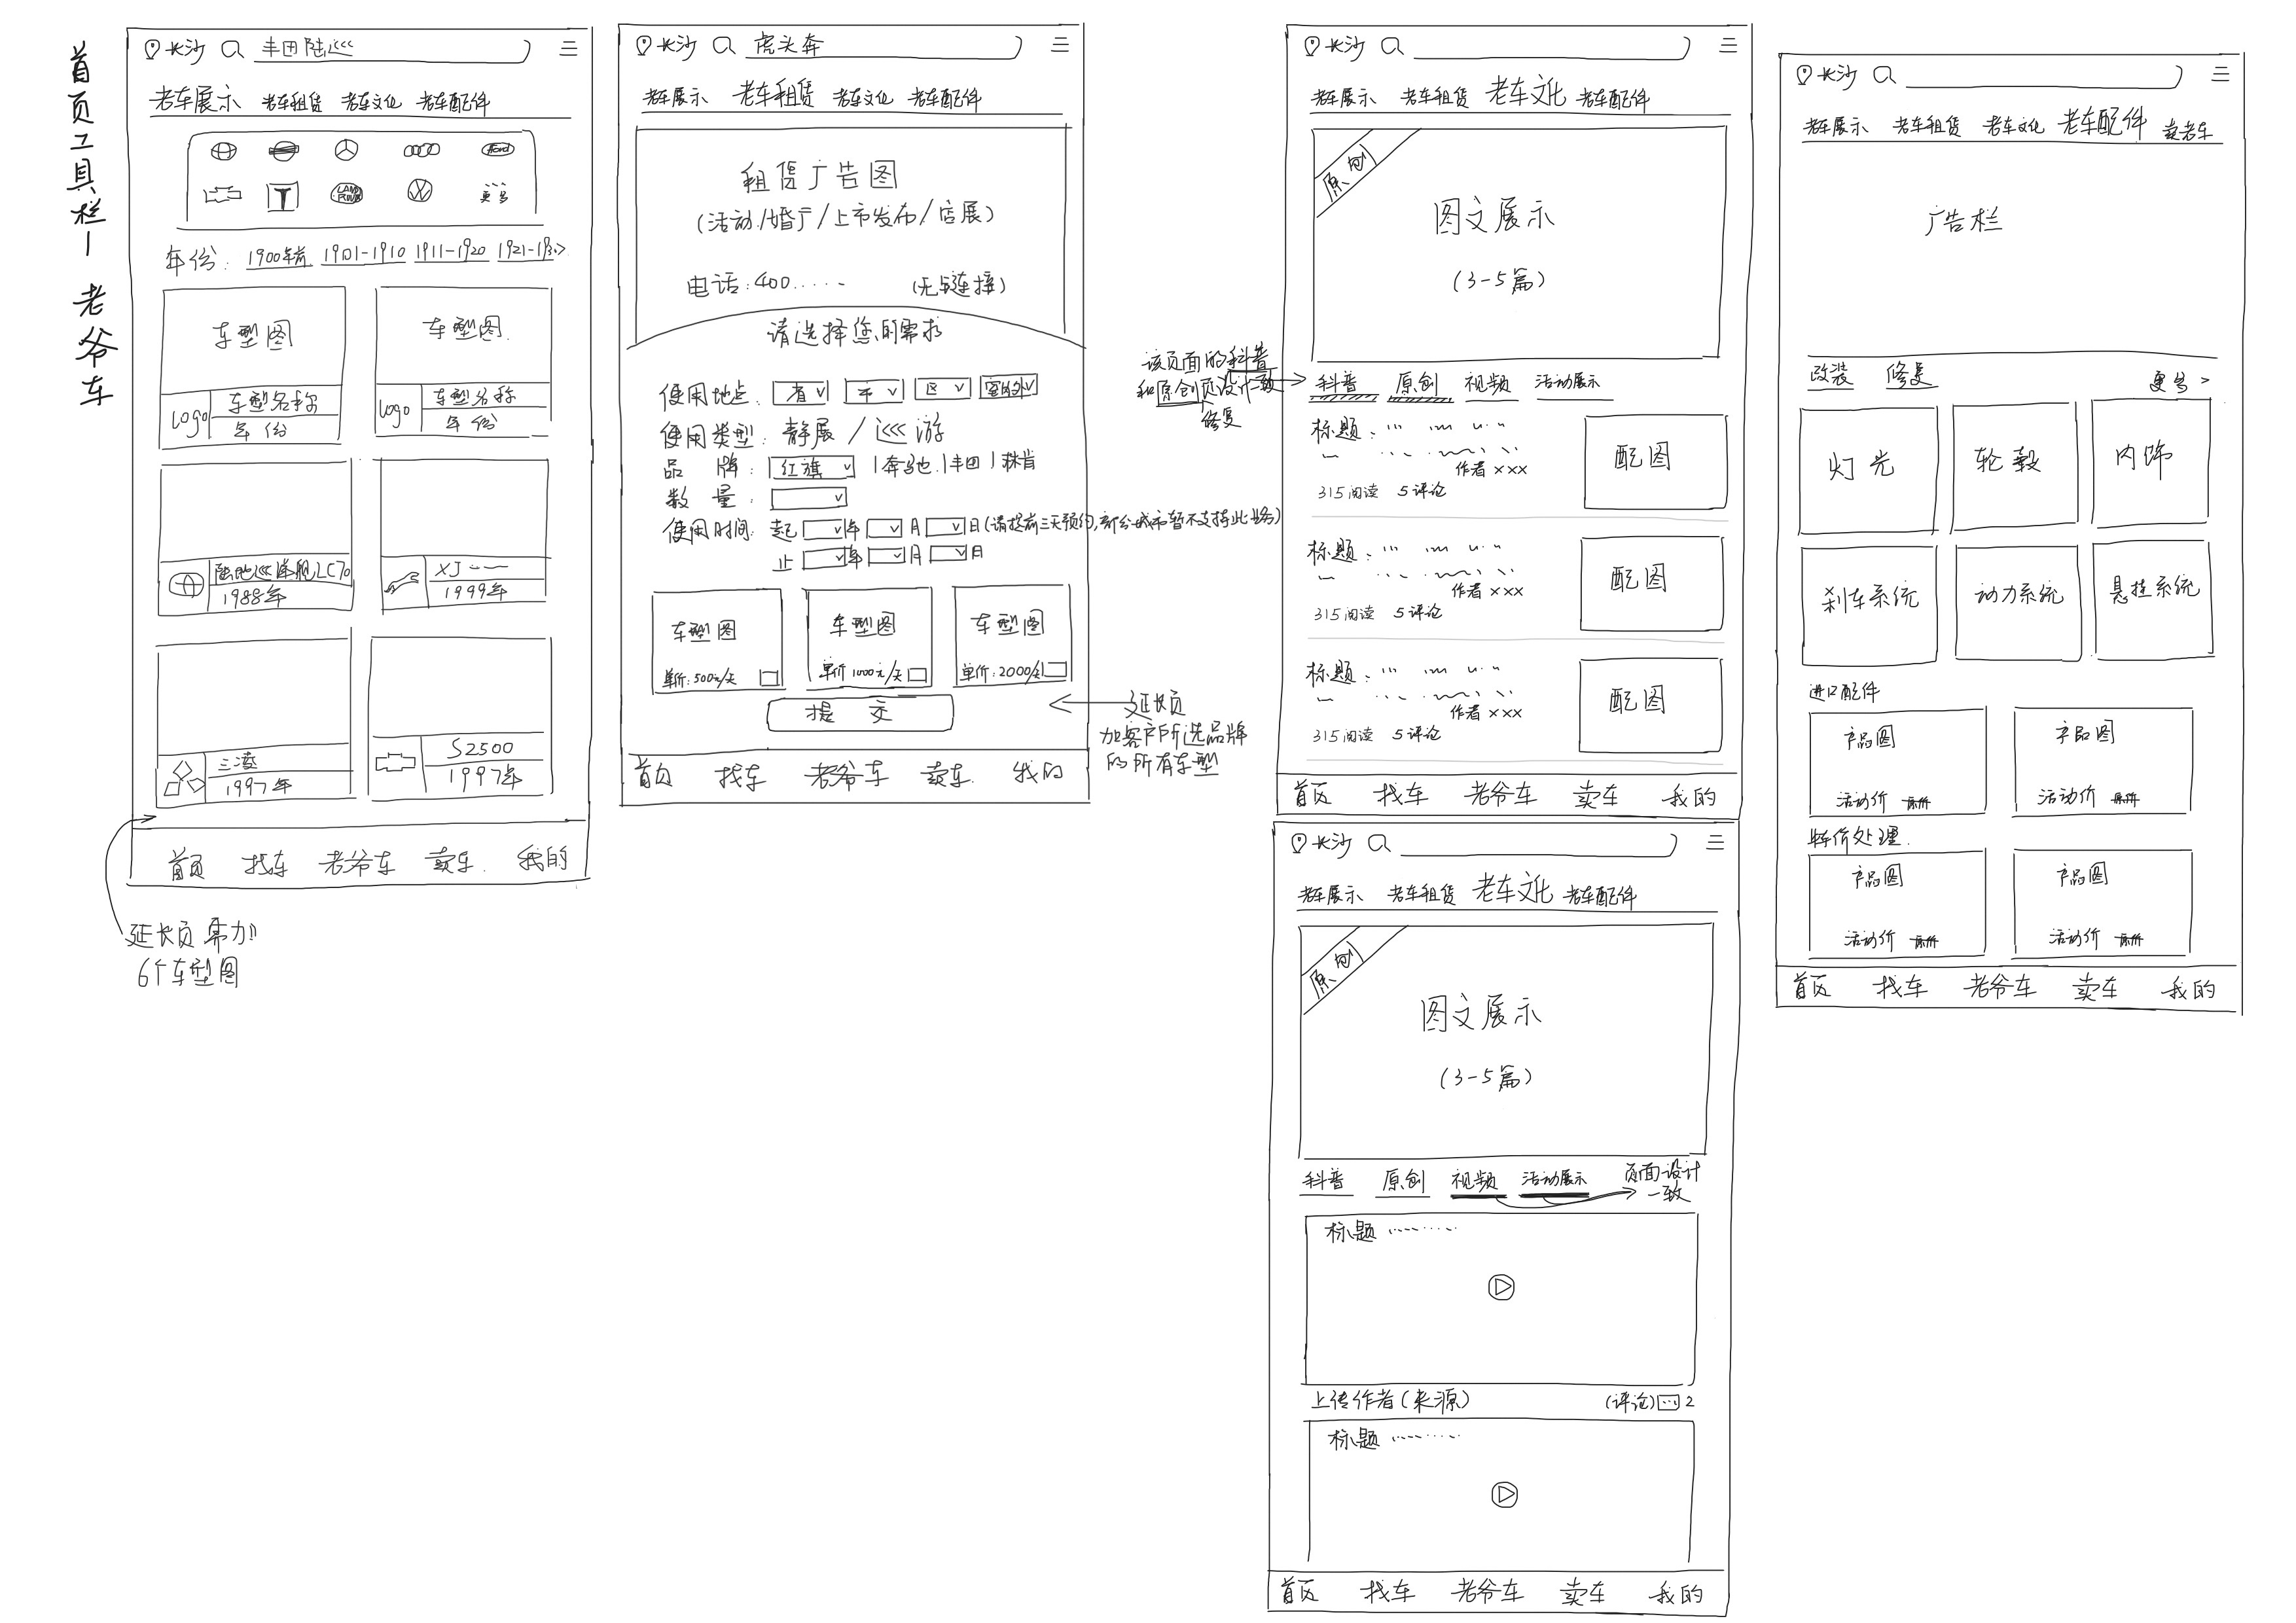 首页工具栏—老爷车
长沙 丰田陆巡
老车展示 老车租赁 老车文化 老车配件
Ford
LAND ROVER
更多
年份: 1900年前 1901-1910 1911-1920 1921-1930>
车型图 车型图
logo 车型名称 logo 车型名称
年份 年份
陆地巡洋舰LC70 XJ
1988年 1999年
三凌 S2500
1997年 1997年
首页 找车 老爷车 卖车 我的
延长页需加
6个车型图
长沙 虎头奔
老车展示 老车租赁 老车文化 老车配件
租赁广告图
(活动/婚庁/上市发布/店展)
电话:400..... (无链接)
请选择您的需求
使用地点: 省 市 区 室内外
使用类型: 静展/巡游
品牌: 红旗 |奔驰|丰田|林肯
数量:
使用时间: 起 年 月 日(请提前三天预约,部分城市暂不支持此业务)
止 年 月 日
车型图 车型图 车型图
单价:500元/天 单价1000元/天 单价:2000/天
提交
首页 找车 老爷车 卖车 我的
延长页
加客户所选品牌
的所有车型
长沙
老车展示 老车租赁 老车文化 老车配件
原创
图文展示
(3-5篇)
该页面的科普
和原创页设计一致
修复
科普 原创 视频 活动展示
标题: 配图
作者×××
315阅读 5评论
标题: 配图
作者×××
315阅读 5评论
标题: 配图
作者×××
315阅读 5评论
首页 找车 老爷车 卖车 我的
长沙
老车展示 老车租赁 老车文化 老车配件
原创
图文展示
(3-5篇)
科普 原创 视频 活动展示 页面设计
一致
标题 ..........
上传作者(来源) (评论) 2
标题 ..........
首页 找车 老爷车 卖车 我的
长沙
老车展示 老车租赁 老车文化 老车配件 卖老车
广告栏
改装 修复 更多 >
灯光 轮毂 内饰
刹车系统 动力系统 悬挂系统
进口配件
产品图 产品图
活动价 原价 活动价 原价
特价处理
产品图 产品图
活动价 原价 活动价 原价
首页 找车 老爷车 卖车 我的